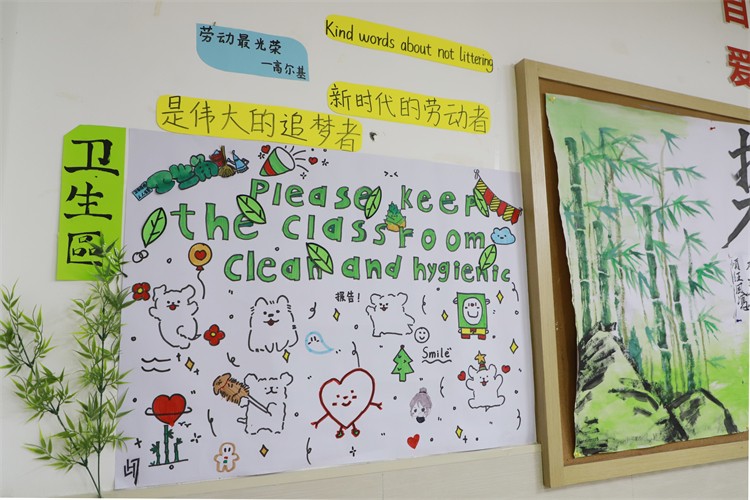 劳动最光荣
—高尔基
Kind words about not littering
新时代的劳动者
是伟大的追梦者
卫生區
Please keep
the classroom
clean and hygienic
报告！
Smile
爱